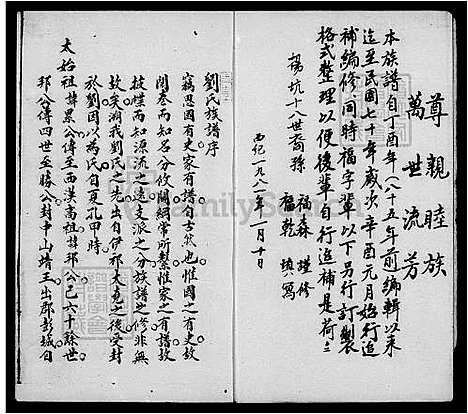 尊親睦族
萬世流芳
本族譜自丁酉年（八十五年前）編輯以來
迄至民國七十年歲次辛酉元月始行追
補編修同時福字輩以下另行訂製
格式整理以便後輩自行追補是荷
楊坑十八世裔孫
福森 謹修
福乾 填寫
西紀一九八一年一月十日
劉氏族譜序
竊思國有史家有譜自古然也惟國之有史故
開卷而知名分攸關綱常所繫惟家之有譜故
披牒而知源流之遠支派之分族譜之修非無
故矣溯我劉氏之先出自伊祁大堯之後受封
於劉因以為氏自夏孔甲時
太始祖諱累公傳至西漢高祖諱邦公已六十餘世
邦公傳四世至勝公封中山靖王出郡彭城自
FamilySearch